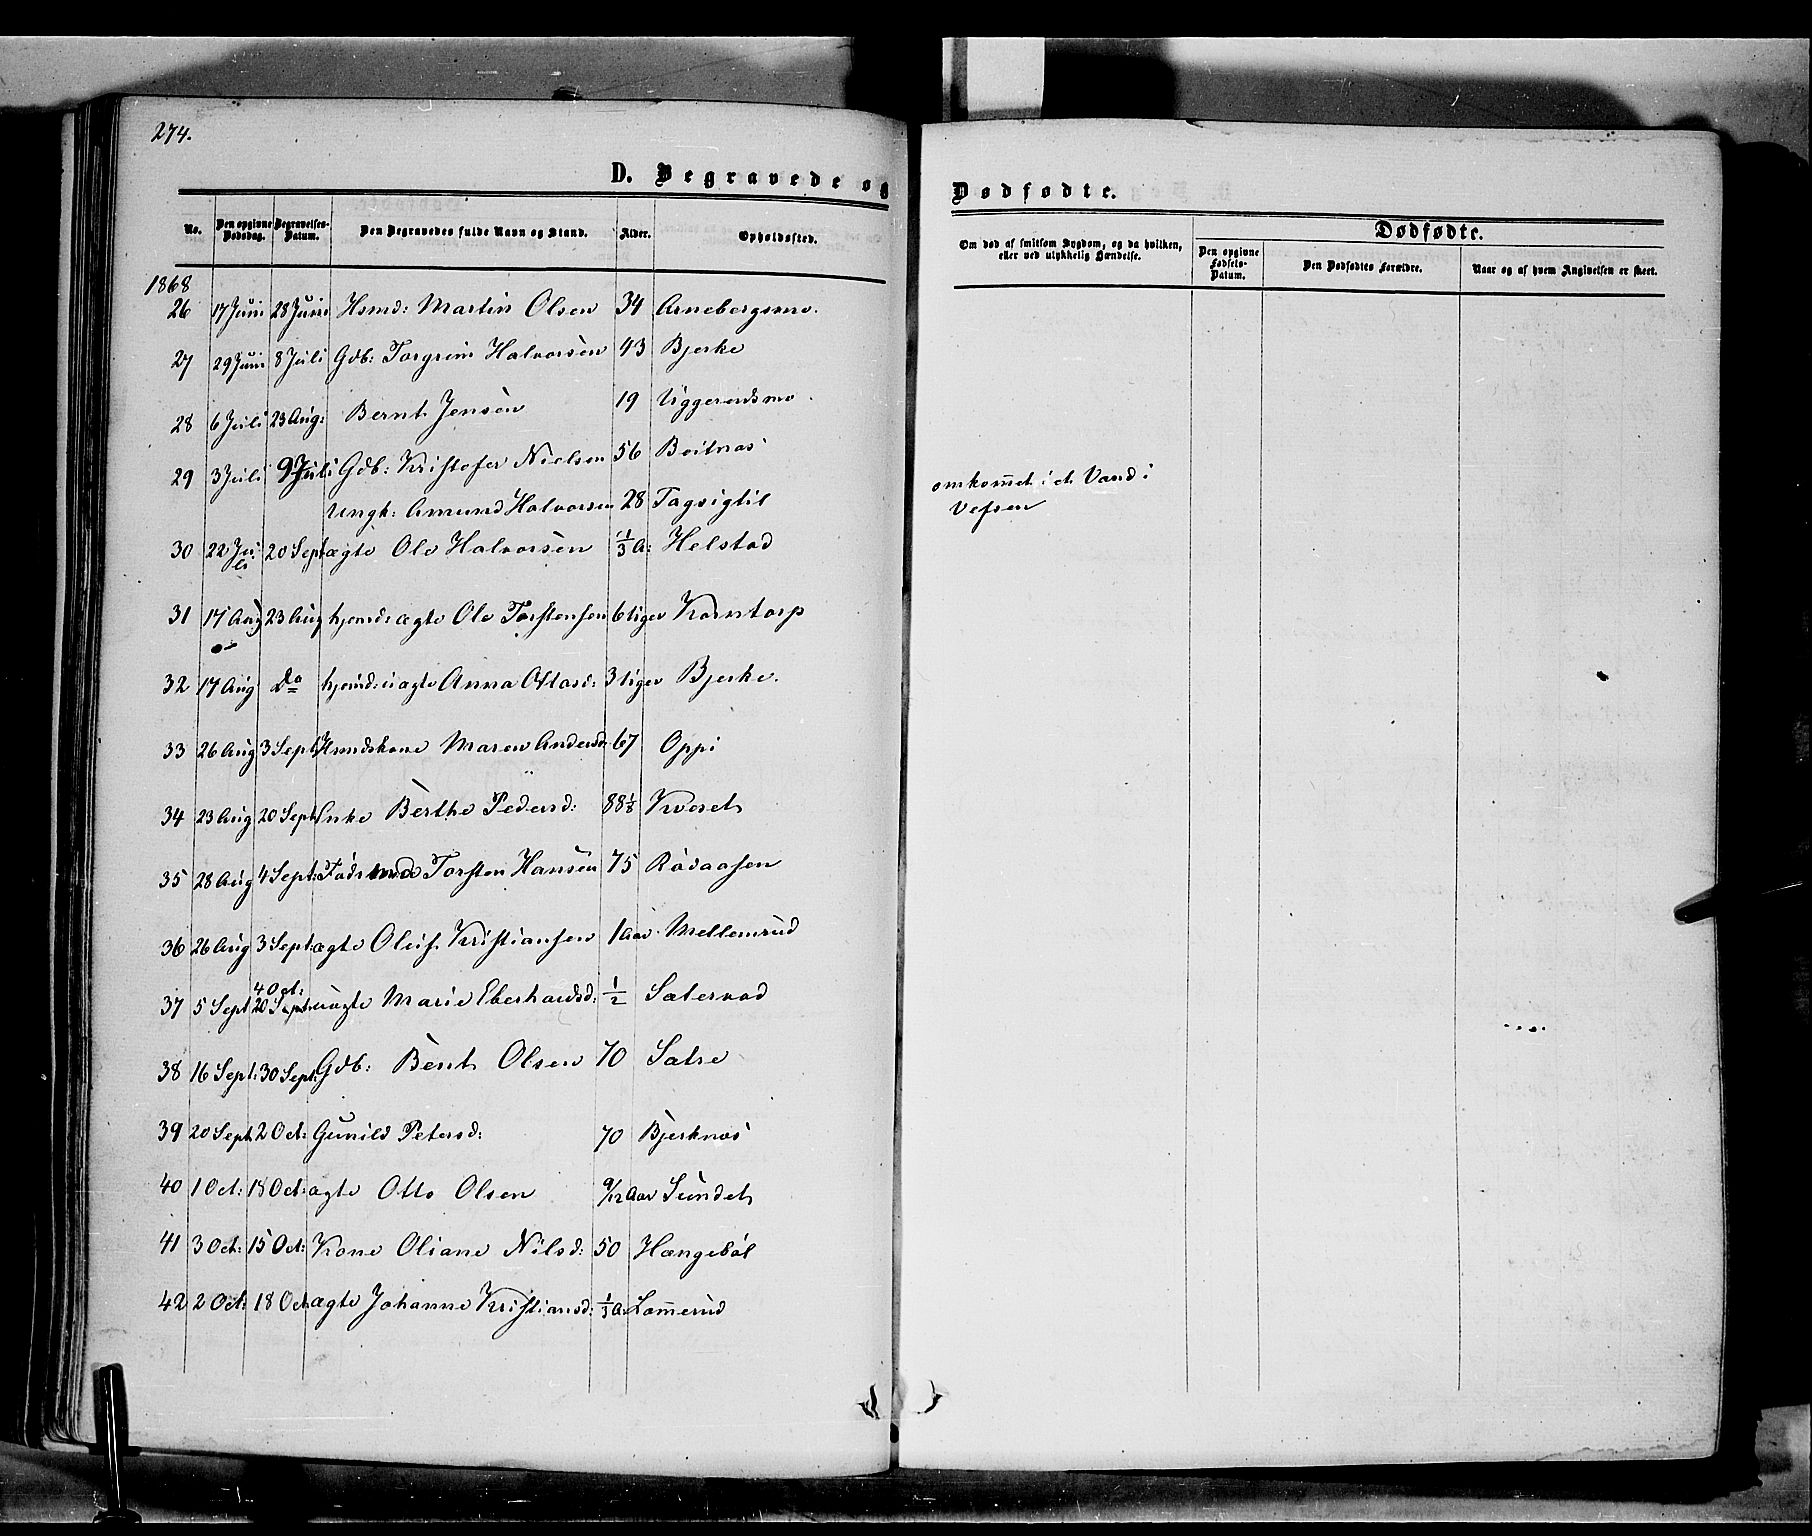 274.
D. Begravede og
No. Den opgivne Dødsdag. Begravelses-Datum. Den Begravedes fulde Navn og Stand. Alder. Opholdssted.
1868
26 17 Juni 28 Juni Hsmd: Martin Olsen 34 Arnebergsmo.
27 29 Juni 8 Juli Gdb: Torgrim Halvorsen 43 Bjerke
28 6 Juli 23 Aug: Bernt Jensen 19 Uggerudsmo.
29 3 Juli 9 Juli Gdb: Kristofer Nielsen 56 Beitnæs
Ungk: Amund Halvorsen 28 Tagsigtil
30 22 Juli 20 Sept ægte Ole Halvorsen 1/3 A: Helstad
31 17 Aug 23 Aug hjemd: ægte Ole Torstensen 6 Uger Korntorp
32 17 Aug Do hjemd: uægte Anna Ottosd: 3 Uger Bjerke.
33 26 Aug 3 Sept Hsmdskone Maren Andersd: 67 Oppi
34 23 Aug 20 Sept Enke Berthe Pedersd: 88 1/3 Kvæset
35 28 Aug 4 Sept: Torsten Hansen 75 Rødaasen
36 26 Aug 3 Sept: ægte Oluf Kristiansen 1 Aar Mellemrud
37 5 Sept 4 Oct: 20 Sept: uægte Marie Eberhardsd: 1/2 Sætervad
38 16 Sept: 30 Sept: Gdb: Bent Olsen 70 Sætre
39 20 Sept 2 Oct: Gunild Petersd: 70 Bjerknæs
40 1 Oct: 18 Oct: ægte Otto Olsen 9/12 Aar Sundet
41 3 Oct: 15 Oct: Kone Oliane Nilsd: 50 Hængebøl
42 2 Oct: 18 Oct ægte Johanne Kristiansd: 1/3 A: Lommerud
Dødfødte.
Om død af smitsom Sygdom, og da hvilken, eller ved ulykkelig Hændelse.
Dødfødte.
Den opgivne Fødsels-Datum. Den Dødfødtes Forældre. Naar og af hvem Angivelsen er skeet.
omkommet i et Vand i
Vefsen